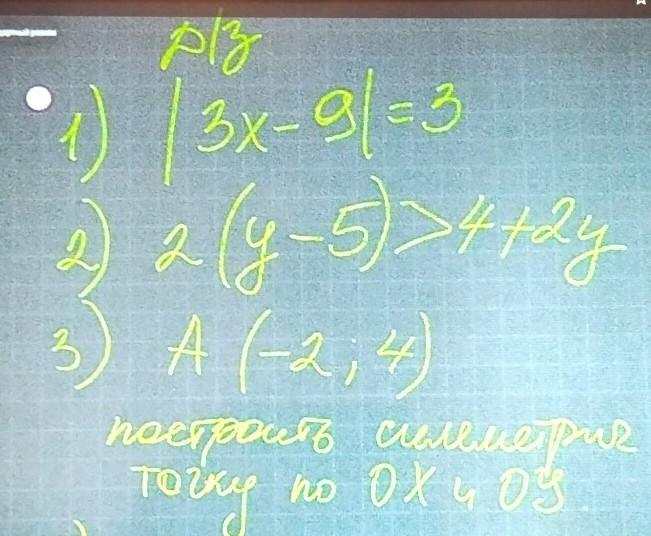 д/з
1) |3x-9|=3
2) 2(y-5)>4+2y
3) A(-2; 4)
построить симметрич
точку по OX и OY